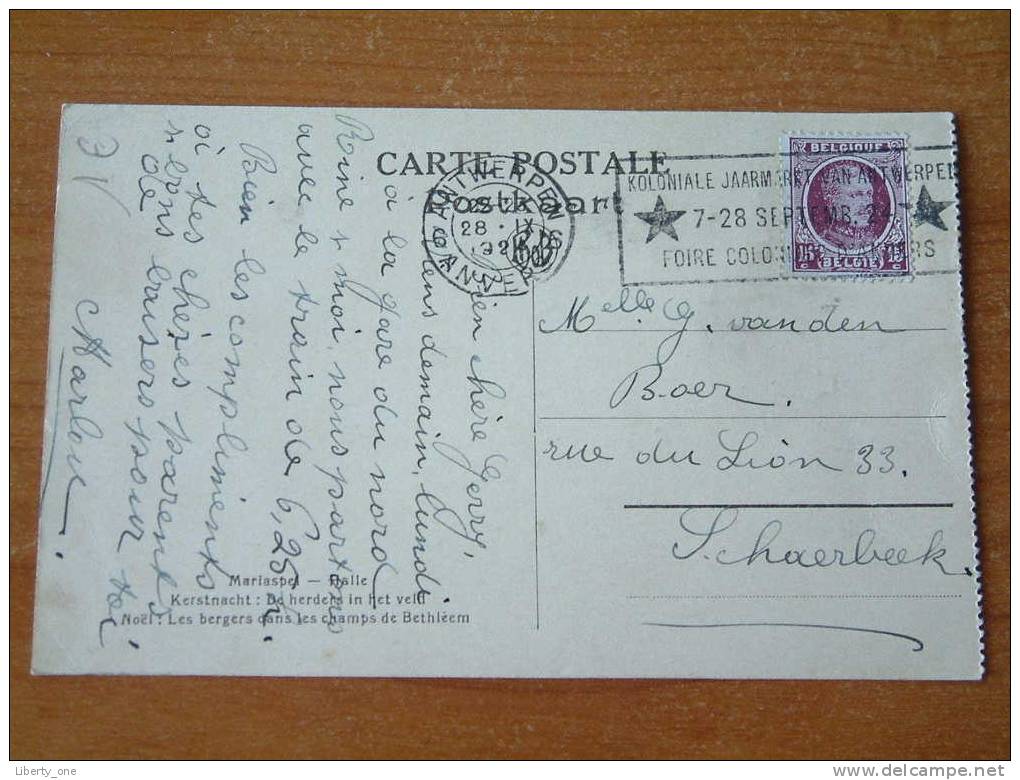 CARTE POSTALE
Postkaart
ANTWERPEN
28 · IX
ANVERS
KOLONIALE JAARMARKT VAN ANTWERPEN
7-28 SEPTEMB.
FOIRE COLONIALE D'ANVERS
BELGIQUE
15 c 15 c
BELGIË
Melle G. van den
Boer.
rue du Lion 33.
Schaerbeek.
Bien chère Gerry,
Viens demain, lundi
à la gare du nord
Rine & moi, nous partons
avec le train de 6,25 h.
Bien les compliments
à tes chères parents
de bons baisers pour toi
Marlou.
Mariaspel — Halle
Kerstnacht : De herders in het veld
Noël : Les bergers dans les champs de Bethléem
Liberty_one
http://www.delcampe.net